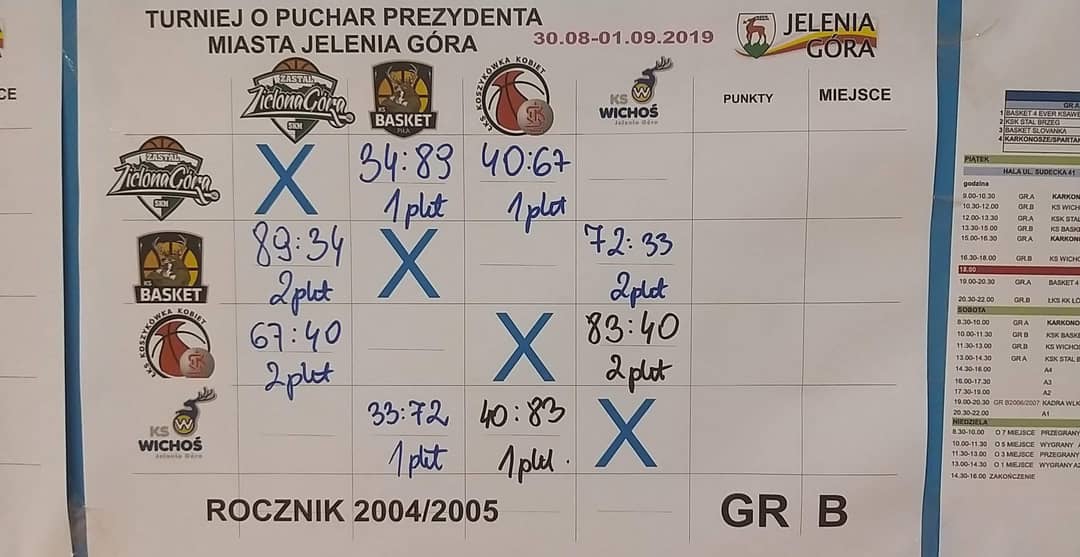 TURNIEJ O PUCHAR PREZYDENTA
MIASTA JELENIA GÓRA
30.08-01.09.2019
JELENIA
GÓRA
ZASTAL
Zielona Góra
SKM
KS
BASKET
PIŁA
ŁKS KOSZYKÓWKA KOBIET
ŁKS
KS
WICHOŚ
Jelenia Góra
PUNKTY
MIEJSCE
CE
ZASTAL
Zielona Góra
SKM
X
34:89
1 pkt
40:67
1 pkt
KS
BASKET
89:34
2 pkt
X
72:33
2 pkt
ŁKS KOSZYKÓWKA KOBIET
ŁKS
67:40
2 pkt
X
83:40
2 pkt
KS
WICHOŚ
Jelenia Góra
33:72
1 pkt
40:83
1 pkt.
X
ROCZNIK 2004/2005
GR B
GR.A
1 BASKET 4 EVER KSAWE
2 KSK STAL BRZEG
3 BASKET SLOVANKA
4 KARKONOSZE/SPARTAN
PIĄTEK
HALA UL. SUDECKA 41
godzina
9.00-10.30 GR.A KARKON
10.30-12.00 GR.B KS WICH
12.00-13.30 GR.A KSK STAL
13.30-15.00 GR.B KS BASK
15.00-16.30 GR.A KARKON
16.30-18.00 GR.B KS WICHO
18.00
19.00-20.30 GR.A BASKET 4
20.30-22.00 GR.B ŁKS KK ŁÓ
SOBOTA
8.30-10.00 GR A KARKONO
10.00-11.30 GR B KSK BASKE
11.30-13.00 GR.B KS WICHO
13.00-14.30 GR A KSK STAL B
14.30-16.00 A4
16.00-17.30 A3
17.30-19.00 A2
19.00-20.30 GR B2006/2007 KADRA WLK
20.30-22.00 A1
NIEDZIELA
8.30-10.00 O 7 MIEJSCE PRZEGRANY
10.00-11.30 O 5 MIEJSCE WYGRANY A
11.30-13.00 O 3 MIEJSCE PRZEGRANY
13.00-14.30 O 1 MIEJSCE WYGRANY A2
14.30-16.00 ZAKOŃCZENIE